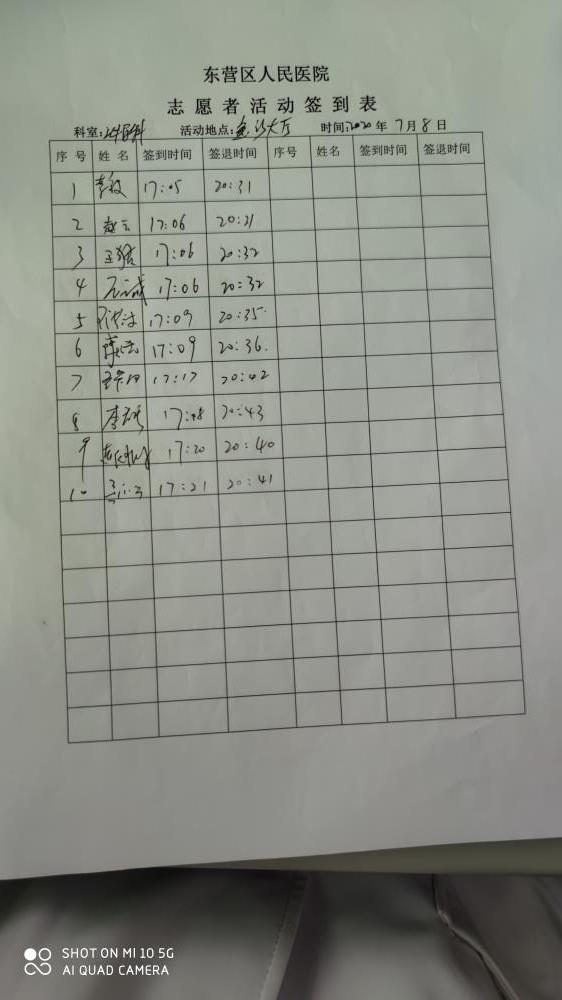 东营区人民医院
志愿者活动签到表
科室: 活动地点: 大厅 时间:2020年7月8日
序号 姓名 签到时间 签退时间 序号 姓名 签到时间 签退时间
1 17:05 20:31
2 赵云 17:06 20:21
3 17:06 20:32
4 17:06 20:32
5 17:09 20:35
6 17:09 20:36
7 17:17 20:42
8 17:18 20:43
9 17:20 20:40
10 17:21 20:41
SHOT ON MI 10 5G
AI QUAD CAMERA